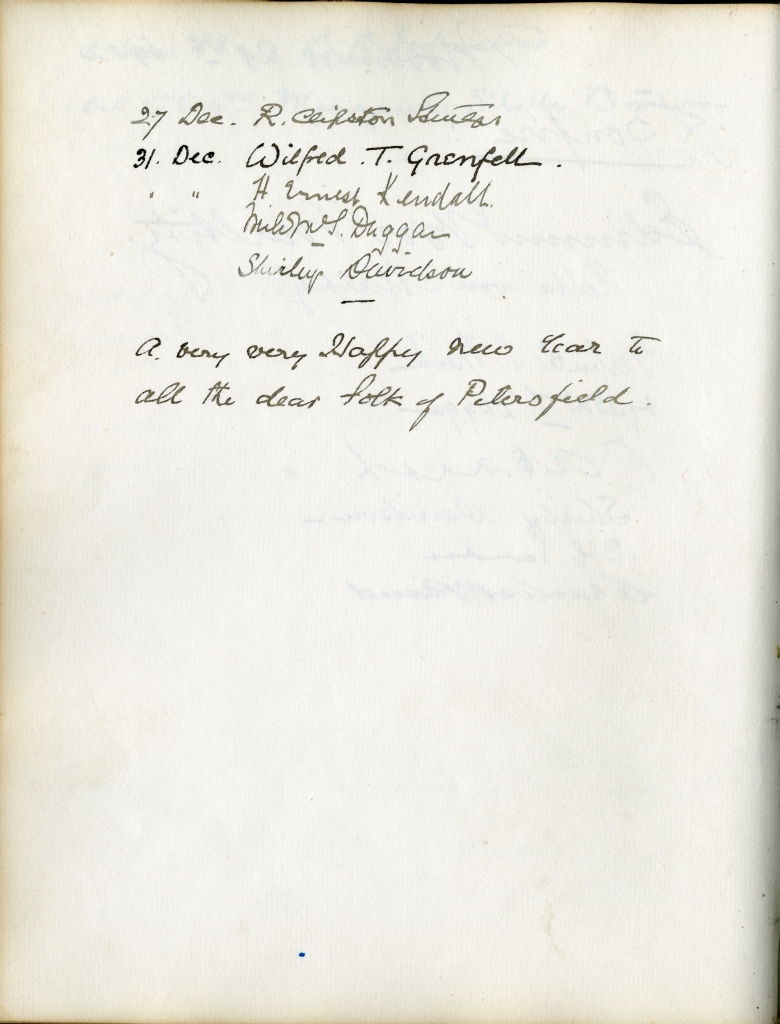 27 Dec. R. Clipston Sturgis
31. Dec. Wilfred . T. Grenfell .
" " H. Ernest Kendall.
Duggan
Shirley Davidson
A very very Happy New Year to
all the dear folk of Petersfield .